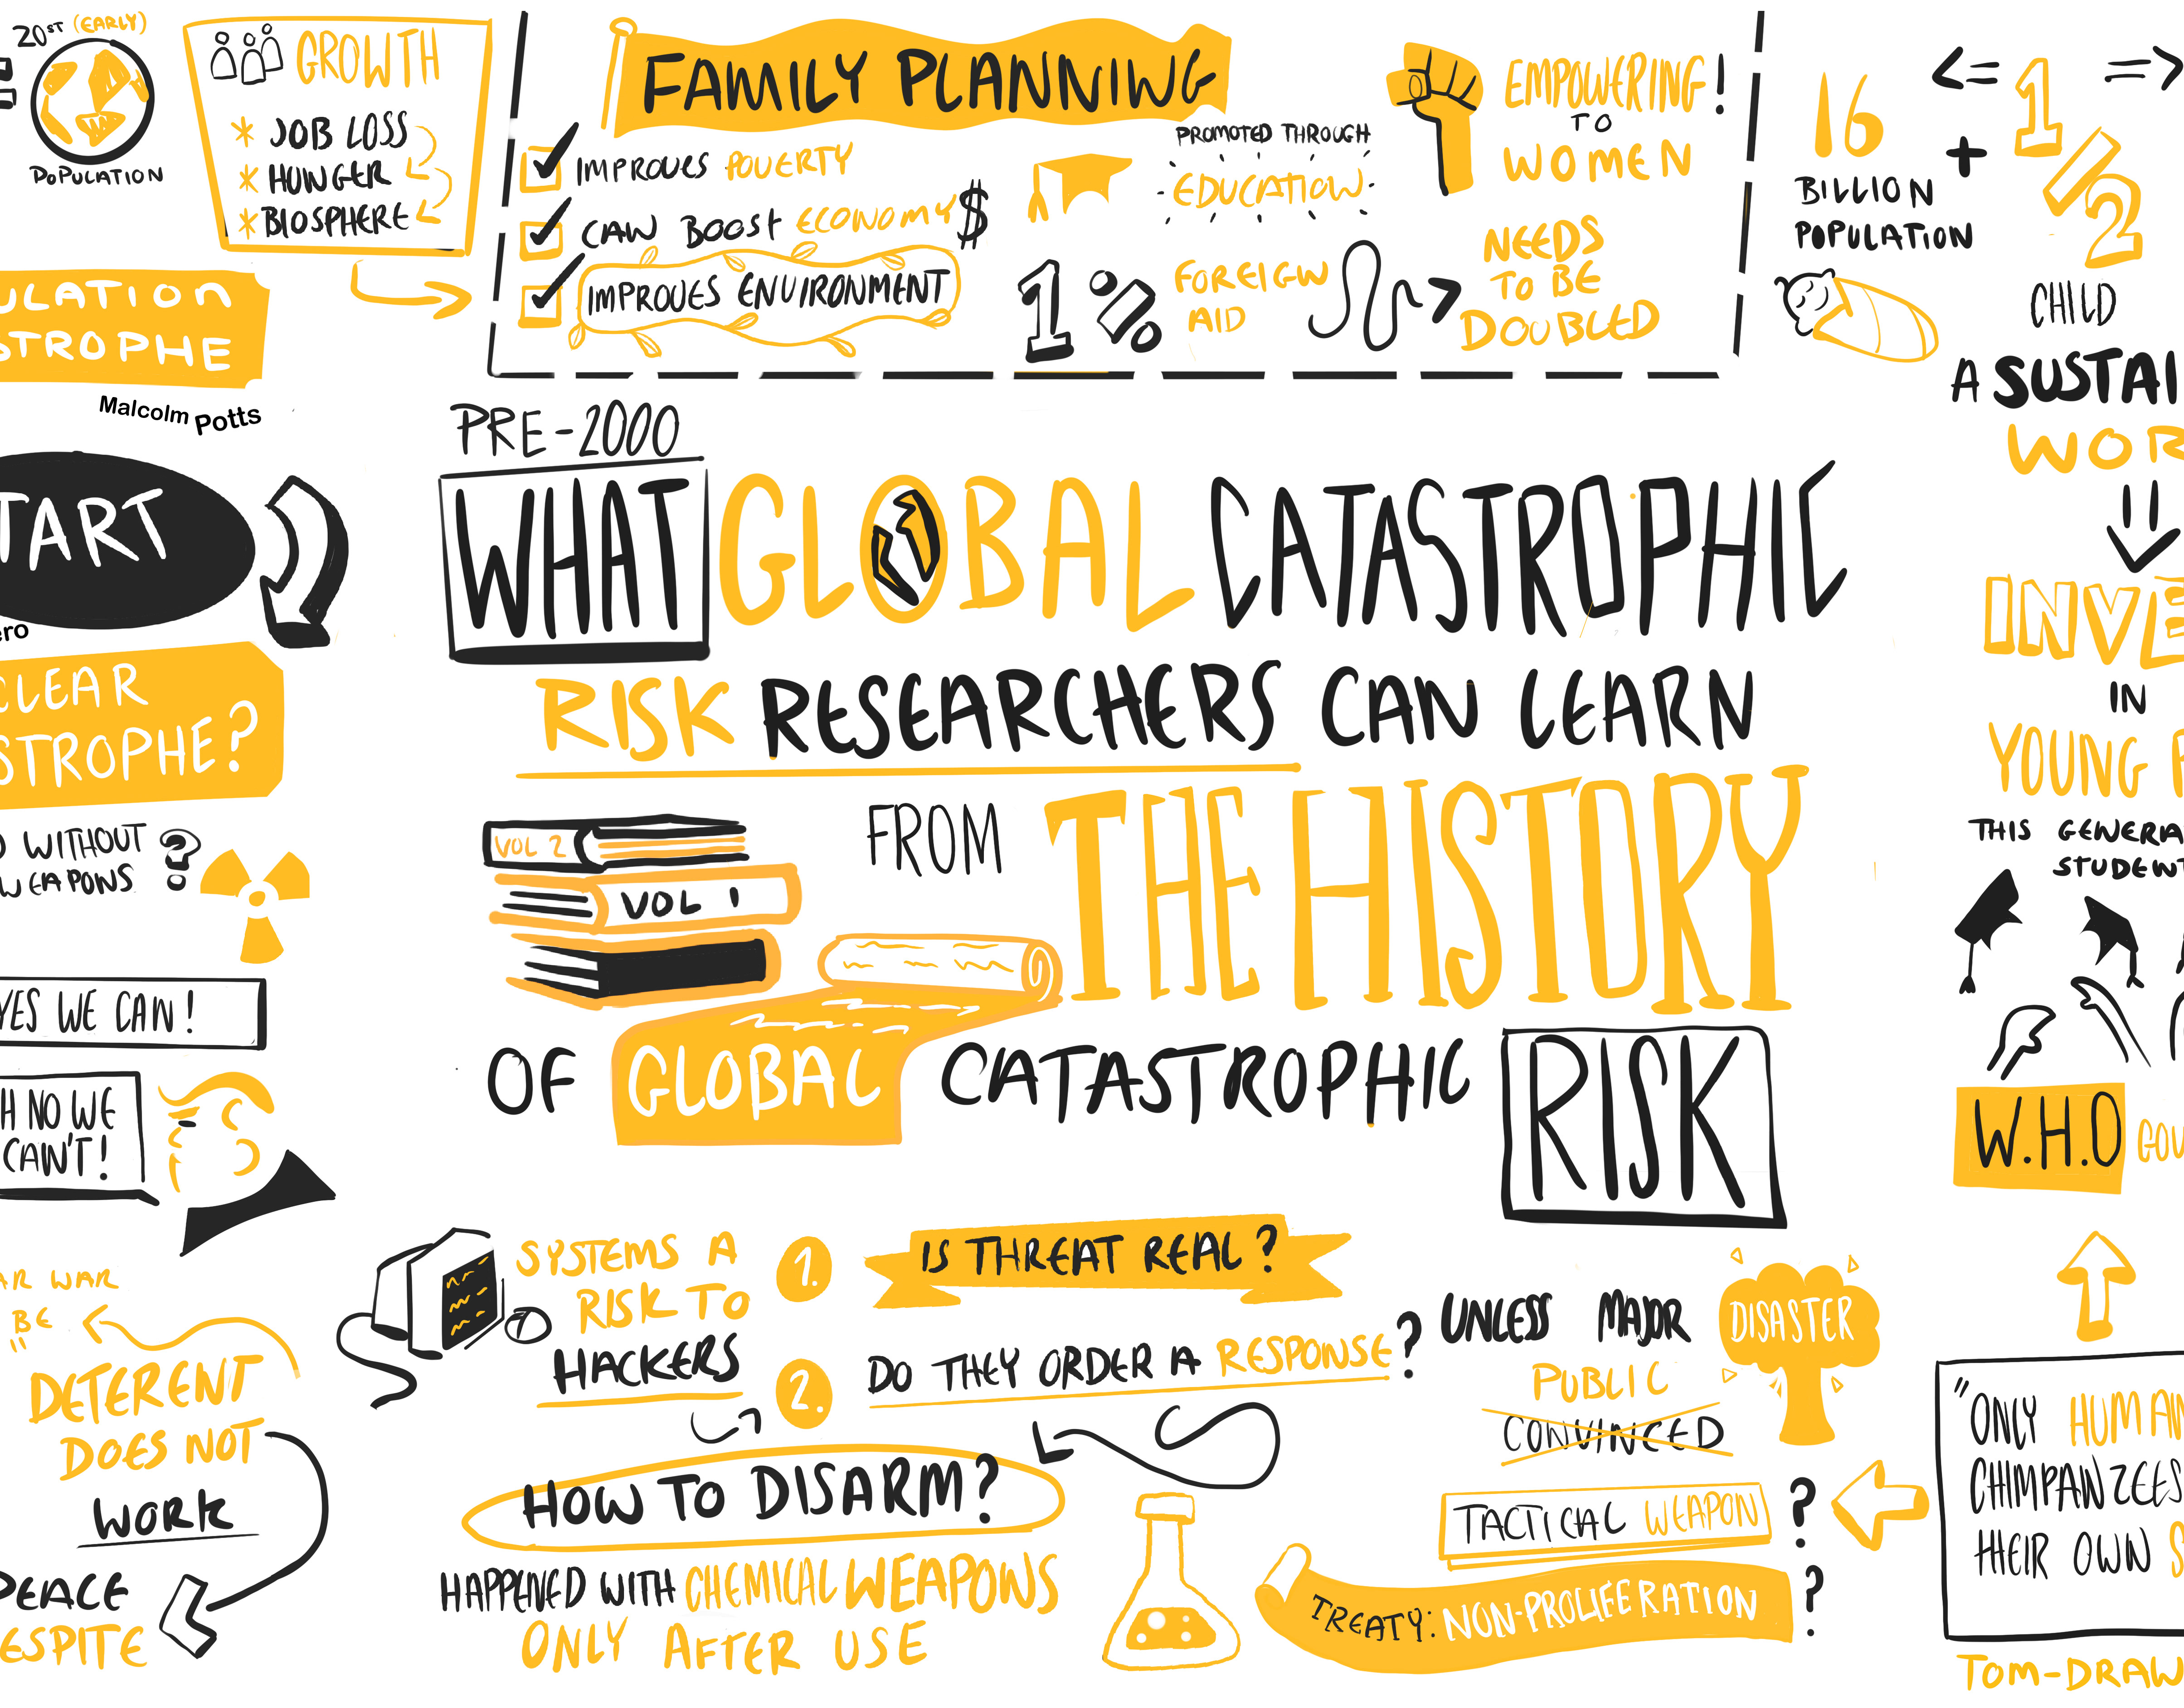 20ST (EARLY)
POPULATION
GROWTH
* JOB LOSS
* HUNGER
* BIOSPHERE
FAMILY PLANNING
IMPROVES POVERTY
CAN BOOST ECONOMY $
IMPROVES ENVIRONMENT
PROMOTED THROUGH
EDUCATION
1% FOREIGN
AID
EMPOWERING!
TO
WOMEN
NEEDS
TO BE
DOUBLED
16
BILLION
POPULATION
<= 1/2 =>
+
CHILD
A SUSTAI
WOR
INVE
IN
YOUNG P
THIS GENERA
STUDENT
W.H.O GOV
ULATION
STROPHE
Malcolm Potts
TART
ero
CLEAR
STROPHE?
D WITHOUT
WEAPONS ?
YES WE CAN!
H NO WE
CAN'T!
AR WAR
BE
"
DETERENT
DOES NOT
WORK
PEACE
ESPITE
PRE-2000
WHAT GLOBAL CATASTROPHIC
RISK RESEARCHERS CAN LEARN
FROM THE HISTORY
VOL 2
VOL 1
OF GLOBAL CATASTROPHIC RISK
SYSTEMS A
RISK TO
HACKERS
1. IS THREAT REAL?
2. DO THEY ORDER A RESPONSE?
HOW TO DISARM?
HAPPENED WITH CHEMICAL WEAPONS
ONLY AFTER USE
UNLESS MAJOR DISASTER
PUBLIC
CONVINCED
TACTICAL WEAPON ?
TREATY: NON-PROLIFERATION ?
"ONLY HUMAN
CHIMPANZEES
THEIR OWN S
TOM-DRAW